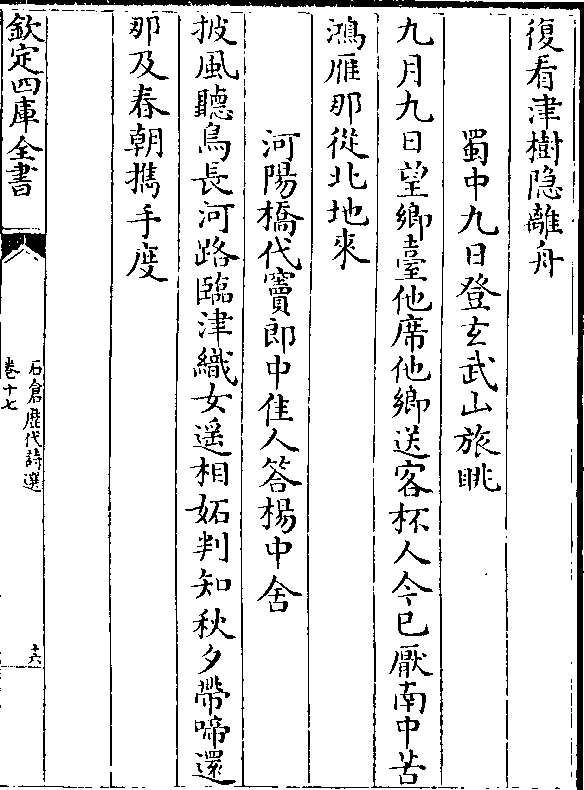 復看津樹隐離舟
蜀中九日登玄武山旅眺
九月九日望鄉臺他席他鄉送客杯人今已厭南中苦
鴻雁那從北地來
河陽橋代竇郎中佳人答楊中舍
披風聽鳥長河路臨津織女遥相妬判知秋夕帶啼還
那及春朝攜手度
欽定四庫全書
石倉歷代詩選
卷十七
十六